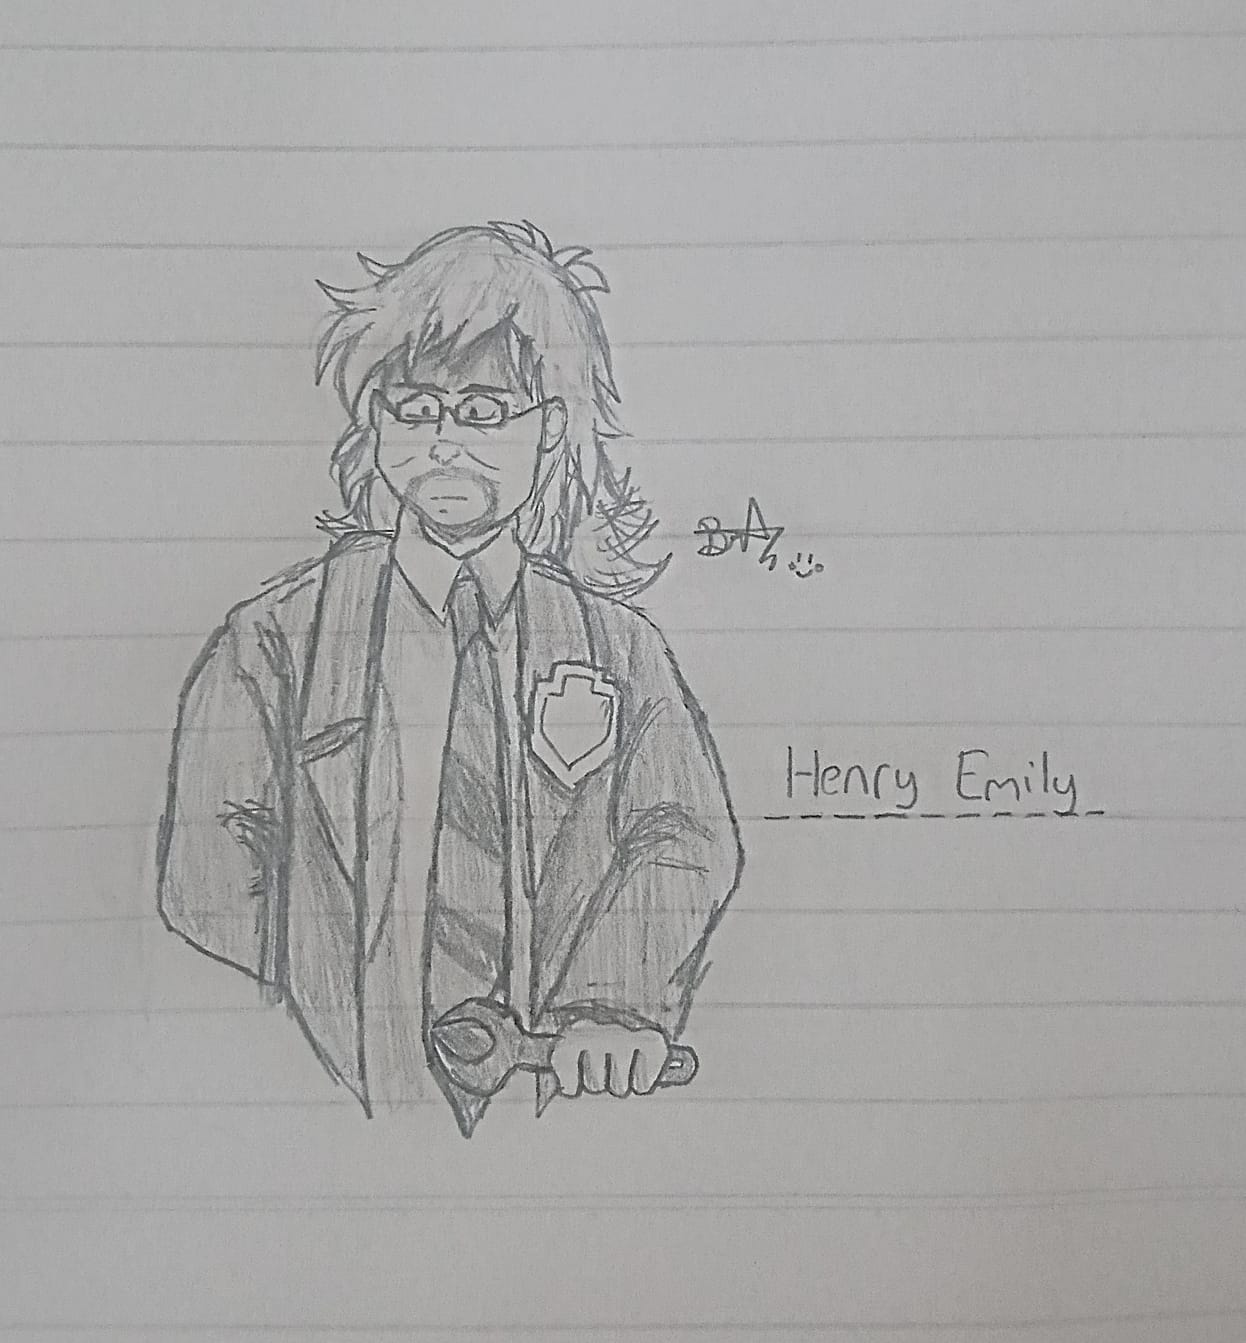 Henry Emily